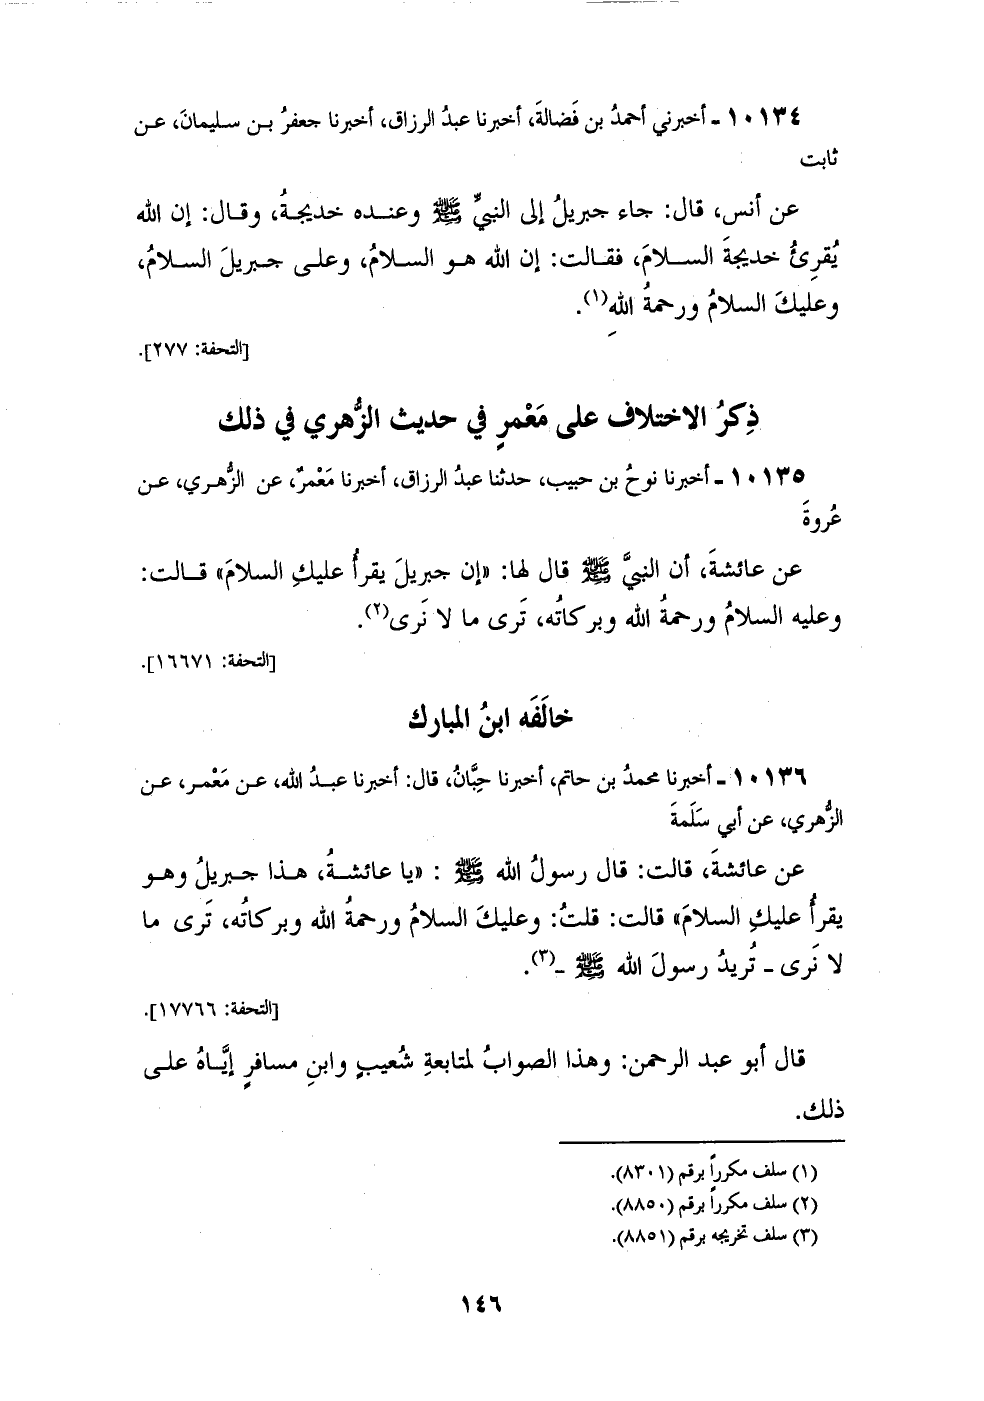 ١٠١٣٤ ـ أخبرني أحمدُ بن فَضالةَ، أخبرنا عبدُ الرزاق، أخبرنا جعفرُ بـن سـليمانَ، عـن
ثابت
عن أنس، قال: جاء جبريلُ إلى النبيِّ ﷺ وعنـده خديجـةُ، وقـال: إن الله
يُقرِئُ خديجةَ السـلامَ، فقـالت: إن الله هـو السـلامُ، وعلـى جـبريلَ السـلامُ،
وعليكَ السلامُ ورحمةُ اللهِ(١).
[التحفة: ٢٧٧].
ذِكرُ الاختلاف على مَعْمرٍ في حديث الزُّهري في ذلك
١٠١٣٥ ـ أخبرنا نوحُ بن حبيب، حدثنا عبدُ الرزاق، أخبرنا مَعْمرٌ، عن الزُّهـري، عـن
عُروةَ
عن عائشةَ، أن النبيَّ ﷺ قال لها: «إن جبريلَ يقرأُ عليكِ السلامَ» قـالت:
وعليه السلامُ ورحمةُ الله وبركاتُه، تَرى ما لا نَرى(٢).
[التحفة: ١٦٦٧١].
خالَفَه ابنُ المبارك
١٠١٣٦ ـ أخبرنا محمدُ بن حاتم، أخبرنا حِبَّانُ، قال: أخبرنا عبـدُ الله، عـن مَعْمـر، عـن
الزُّهري، عن أبي سَلَمةَ
عن عائشةَ، قالت: قال رسولُ الله ﷺ : «يا عائشـةُ، هـذا جـبريلُ وهـو
يقرأُ عليكِ السلامَ» قالت: قلتُ: وعليكَ السلامُ ورحمةُ الله وبركاتُه، تَرى ما
لا نَرى ـ تُريدُ رسولَ الله ﷺ ـ(٣).
[التحفة: ١٧٧٦٦].
قال أبو عبد الرحمن: وهذا الصوابُ لمتابعةِ شُعيبٍ وابنِ مسافرٍ إيَّـاهُ علـى
ذلك.
(١) سلف مكرراً برقم (٨٣٠١).
(٢) سلف مكرراً برقم (٨٨٥٠).
(٣) سلف تخريجه برقم (٨٨٥١).
١٤٦